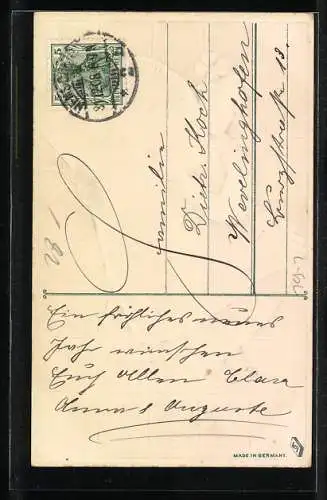 Familie
Dietr. Koch
Wevelinghofen
Burgstraße 18.
Ein fröhliches neues
Jahr wünschen
Euch Allen Clara
Anna & Auguste
MADE IN GERMANY.